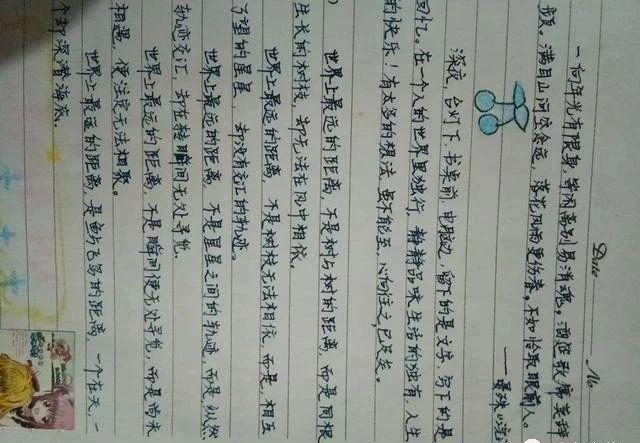 Date No
一向年光有限身，等闲离别易消魂。酒筵歌席莫辞
频。满目山河空念远，落花风雨更伤春。不如怜取眼前人。
——晏殊
深夜，台灯下，书桌前，电脑边，留下的是文字，写下的是
回忆。在一个人的世界里独行，静静品味生活的独有，人生
的快乐！有太多的想法，虽不能至，心向往之，已足矣。
世界上最远的距离，不是树与树的距离，而是同根
生长的树枝，却无法在风中相依。
世界上最远的距离，不是树枝无法相依，而是，相互
了望的星星，却没有交汇的轨迹。
世界上最远的距离，不是星星之间的轨迹，而是纵然
轨迹交汇，却在转瞬间无处寻觅。
世界上最远的距离，不是瞬间便无处寻觅，而是尚未
相遇，便注定无法相聚。
世界上最远的距离，是鱼与飞鸟的距离，一个在天，一
个却深潜海底。